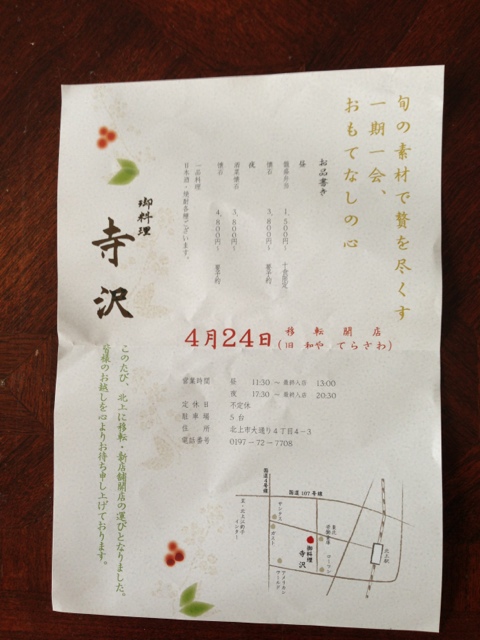 旬の素材で贅を尽くす
一期一会、
おもてなしの心
お品書き
昼
籠盛弁当 1,500円~ 十食限定
懐石 3,800円~ 要予約
夜
懐石 4,800円~ 要予約
一品料理
日本酒・焼酎各種ございます。
御料理
寺沢
4月24日 移転開店
(旧 和や てらさわ)
このたび、北上に移転・新店舗開店の運びとなりました。
皆様のお越しを心よりお待ち申し上げております。
営業時間 昼 11:30 ~ 最終入店 13:00
夜 17:30 ~ 最終入店 20:30
定休日 不定休
駐車場 5台
住所 北上市大通り4丁目4-3
電話番号 0197-72-7708
街道4号線
街道 107号線
至・北上江釣子
インター
御料理
寺沢
北上駅